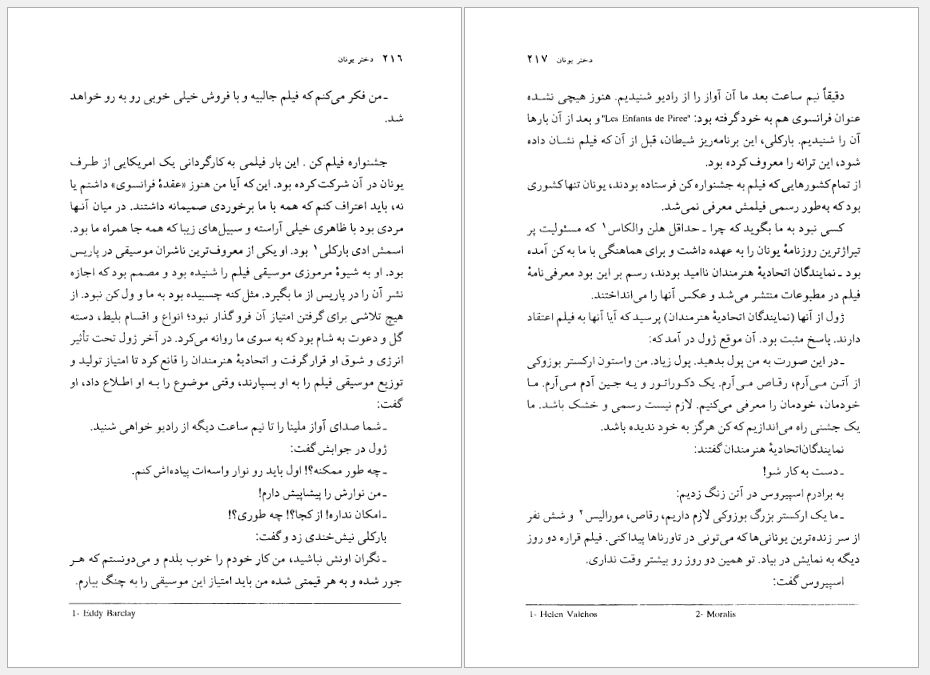 ۲۱۶ دختر یونان
ـ من فکر می‌کنم که فیلم جالبیه و با فروش خیلی خوبی رو به رو خواهد
شد.
جشنواره فیلم کن . این بار فیلمی به کارگردانی یک امریکایی از طرف
یونان در آن شرکت کرده بود. این که آیا من هنوز «عقدهٔ فرانسوی» داشتم یا
نه، باید اعتراف کنم که همه با ما برخوردی صمیمانه داشتند. در میان آنها
مردی بود با ظاهری خیلی آراسته و سبیل‌های زیبا که همه جا همراه ما بود.
اسمش ادی بارکلی۱ بود. او یکی از معروف‌ترین ناشران موسیقی در پاریس
بود. او به شیوهٔ مرموزی موسیقی فیلم را شنیده بود و مصمم بود که اجازه
نشر آن را در پاریس از ما بگیرد. مثل کنه چسبیده بود به ما و ول کن نبود. از
هیچ تلاشی برای گرفتن امتیاز آن فرو گذار نبود؛ انواع و اقسام بلیط، دسته
گل و دعوت به شام بود که به سوی ما روانه می‌کرد. در آخر ژول تحت تأثیر
انرژی و شوق او قرار گرفت و اتحادیهٔ هنرمندان را قانع کرد تا امتیاز تولید و
توزیع موسیقی فیلم را به او بسپارند، وقتی موضوع را به او اطلاع داد، او
گفت:
ـ شما صدای آواز ملینا را تا نیم ساعت دیگه از رادیو خواهی شنید.
ژول در جوابش گفت:
ـ چه طور ممکنه؟! اول باید رو نوار واسه‌ات پیاده‌اش کنم.
ـ من نوارش را پیشاپیش دارم!
ـ امکان نداره! از کجا؟! چه طوری؟!
بارکلی نیش‌خندی زد و گفت:
ـ نگران اونش نباشید، من کار خودم را خوب بلدم و می‌دونستم که هر
جور شده و به هر قیمتی شده من باید امتیاز این موسیقی را به چنگ بیارم.
1- Eddy Barclay
دختر یونان ۲۱۷
دقیقاً نیم ساعت بعد ما آن آواز را از رادیو شنیدیم. هنوز هیچی نشده
عنوان فرانسوی هم به خود گرفته بود: "Les Enfants de Piree" و بعد از آن بارها
آن را شنیدیم. بارکلی، این برنامه‌ریز شیطان، قبل از آن که فیلم نشان داده
شود، این ترانه را معروف کرده بود.
از تمام کشورهایی که فیلم به جشنواره کن فرستاده بودند، یونان تنها کشوری
بود که به‌طور رسمی فیلمش معرفی نمی‌شد.
کسی نبود به ما بگوید که چرا ـ حداقل هلن والکاس۱ که مسئولیت پر
تیراژترین روزنامهٔ یونان را به عهده داشت و برای هماهنگی با ما به کن آمده
بود ـ نمایندگان اتحادیهٔ هنرمندان ناامید بودند، رسم بر این بود معرفی نامهٔ
فیلم در مطبوعات منتشر می‌شد و عکس آنها را می‌انداختند.
ژول از آنها (نمایندگان اتحادیهٔ هنرمندان) پرسید که آیا آنها به فیلم اعتقاد
دارند. پاسخ مثبت بود. آن موقع ژول در آمد که:
ـ در این صورت به من پول بدهید. پول زیاد. من واستون ارکستر بوزوکی
از آتن می‌آرم، رقاص می‌آرم. یک دکوراتور و یه جین آدم می‌آرم. ما
خودمان، خودمان را معرفی می‌کنیم. لازم نیست رسمی و خشک باشد. ما
یک جشنی راه می‌اندازیم که کن هرگز به خود ندیده باشد.
نمایندگان اتحادیهٔ هنرمندان گفتند:
ـ دست به کار شو!
به برادرم اسپیروس در آتن زنگ زدیم:
ـ ما یک ارکستر بزرگ بوزوکی لازم داریم، رقاص، مورالیس۲ و شش نفر
از سر زنده‌ترین یونانی‌ها که می‌تونی در تاورناها پیدا کنی. فیلم قراره دو روز
دیگه به نمایش در بیاد. تو همین دو روز رو بیشتر وقت نداری.
اسپیروس گفت:
1- Helen Valchos 2- Moralis